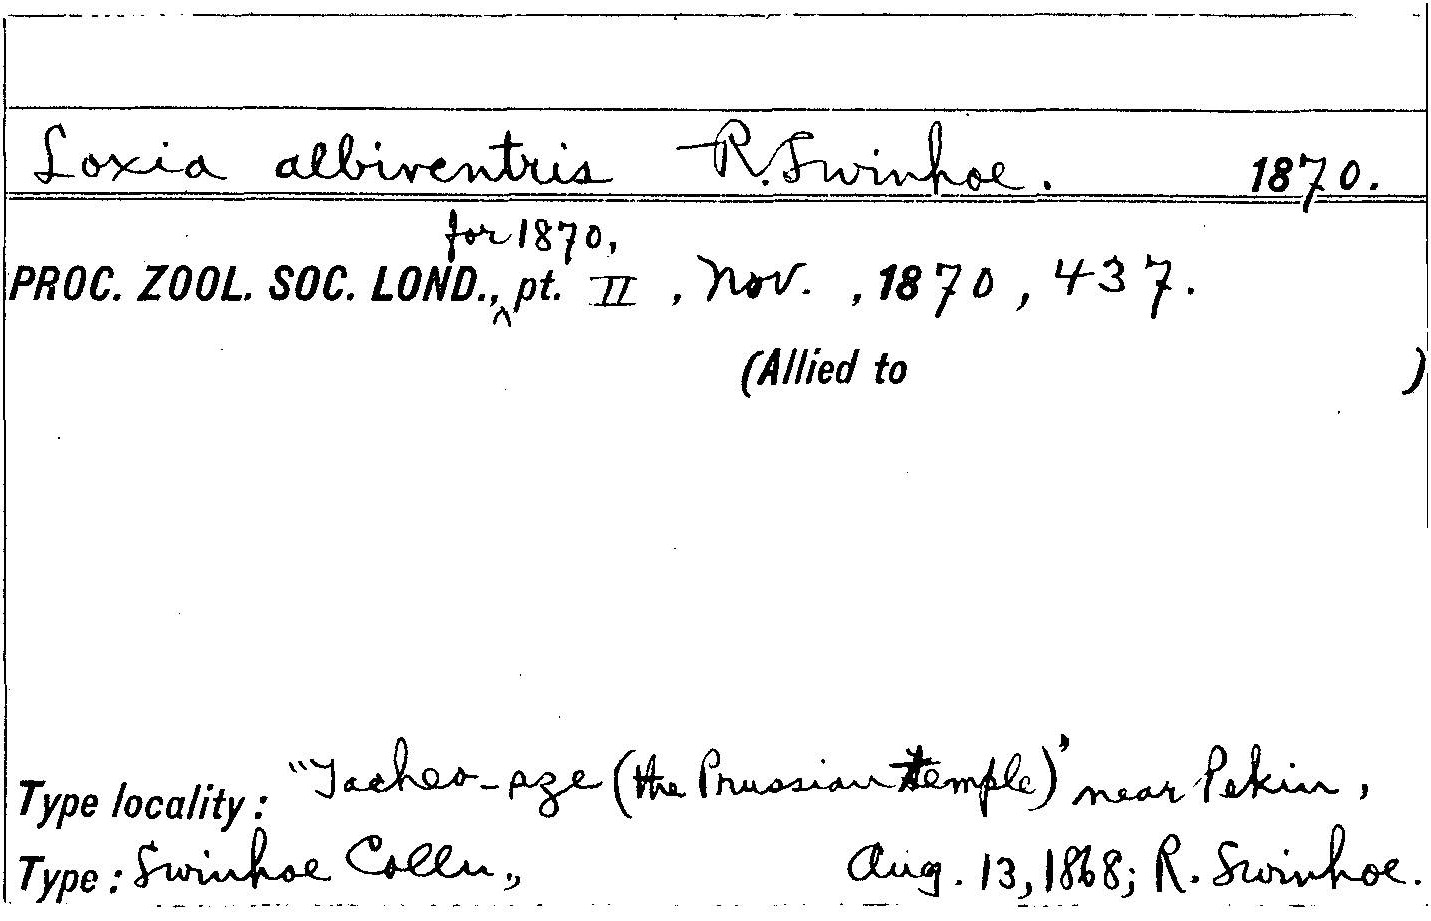 Loxia albiventris R. Swinhoe. 1870.
for 1870,
PROC. ZOOL. SOC. LOND.,^ pt. II, Nov. , 1870, 437.
(Allied to )
Type locality: "Tacheo-sze (the Prussian temple)" near Pekin,
Type: Swinhoe Colln., Aug. 13, 1868; R. Swinhoe.